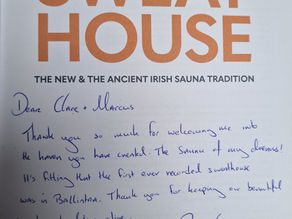 SWEAT
HOUSE
THE NEW & THE ANCIENT IRISH SAUNA TRADITION
Dear Clare + Marcus
Thank you so much for welcoming me into
the haven you have created. The sauna of my dreams!
It's fitting that the first ever recorded sweathouse
was in Ballintra. Thank you for keeping our beautiful